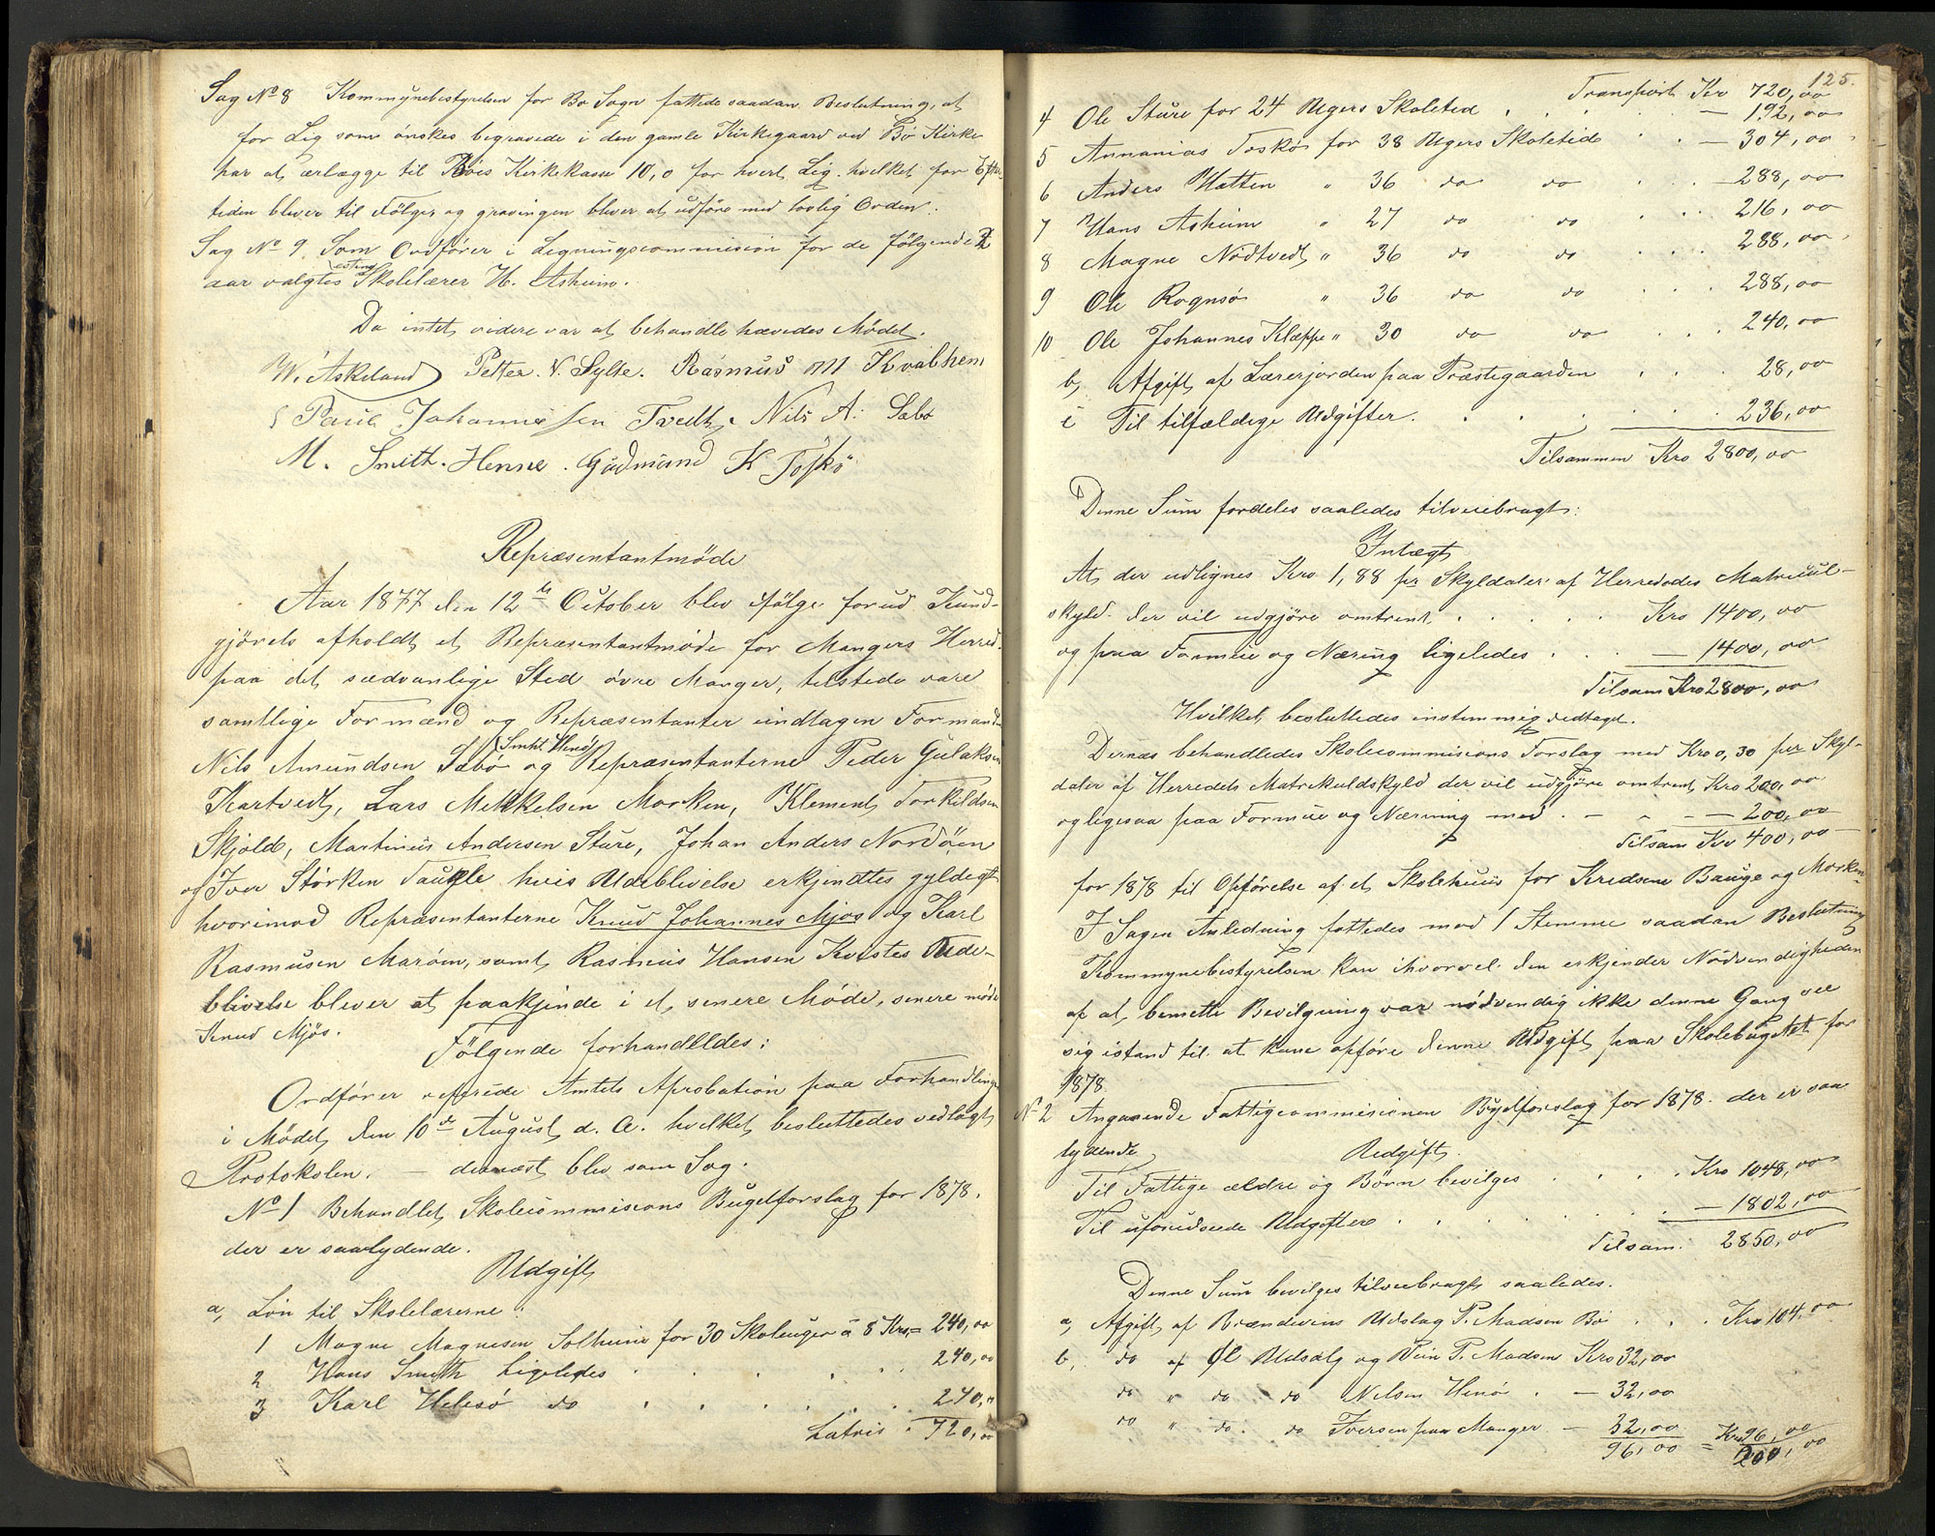 Sag No 8 Kommynebestyrelsen for Bø Sogn fattede saadan Beslutning, at
for Lig som ønskes begravede i den gamle Kirkegaard ved Bø Kirke
har at erlægge til Bøes Kirkekasse 10,0 for hvert Lig. hvilket for Efter-
tiden bliver til Følge, og gravingen bliver at udføre med lovlig Orden.
Sag No 9. Som Ordfører i Ligningscommission for de følgende 2
aar valgtes Skolelærer H. Askeim.
Da intet videre var at behandle hævedes Mödet.
W. Askeland Petter. N. Sylte. Rasmus M Kvalhem
Paul Johannessen Tvedt, Nils A: Sæbø
M. Smith. Henne. Gudmund K Toskö
Repræsentantmöde
Aar 1877 den 12te October blev ifölge forud Kund-
gjörels afholdt et Repræsentantmöde for Mangers Herred.
paa det sædvanlige Sted övre Manger, tilstede vare
samtlige Formænd og Repræsentanter undtagen Formænd
Nils Amundsen Sæbö og Repræsentanterne Peder Gulaksen
Kartvedt, Lars Mekkelsen Morken, Klement Torkildsen
Skjold, Martinus Andersen Sture, Johan Anders Nordöen
og Iver Störksen Taugle hvis Udeblivelse erkjendtes gyldigt
hvorimod Repræsentanterne Knud Johannes Mjös og Karl
Rasmusen Maröen, samt Rasmus Hansen Kvistes Ude-
blivelse bliver at paakjende i et senere Möde, senere mödte
Knud Mjös.
Fölgende forhandledes:
Ordförer refererede Amtets Aprobation paa Forhandlinger
i Mödet den 10de August d. A. hvilket besluttedes vedlagt
Protokolen. — dernæst blev som Sag.
No 1 Behandlet Skolecommisions Bugetforslag for 1878.
der er saalydende.
Udgift
a, Lön til Skolelærerne:
1 Magne Magnesen Solheim for 30 Skoleuger á 8 Kr = 240,00
2 Hans Smith Ligeledes 240,00
3 Karl Helesö do 240,"
Latris 720,00
125.
Transport Kr 720,00
4 Ole Sture for 24 Ugers Skoletid — 192,00
5 Annanias Toskö for 38 Ugers Skoletid — 304,00
6 Anders Hatten " 36 do do — 288,00
7 Hans Askeim " 27 do do 216,00
8 Magne Nödtvedt " 36 do do 288,00
9 Ole Rognsö " 36 do do 288,00
10 Ole Johannes Klæppe " 30 do do 240,00
b, Afgift af Lærerjorden paa Præstegaarden 28,00
c Til tilfældige Udgifter. 236,00
Tilsammen Kro 2800,00
Denne Sum fordeles saaledes tilveiebragt:
Intægt
At der udlignes Kro 1,88 pr Skyldaler af Herredeets Matricul-
skyld. der vil udgjöre omtrent Kro 1400,00
og paa Formue og Næring ligeledes — 1400,00
Tilsam Kro 2800,00
Hvilket besluttedes instemmig vedtaget.
Dernæs behandledes Skolecommisions Forslag med Kro 0,30 per Skyl-
daler af Herredets Matrikulskyld der vil udgjöre omtrent Kro 200,00
og ligesaa paa Formue og Næring med — 200,00
Tilsam Kro 400,00
for 1878 til Opförelse af et Skolehuus for Kredsene Bauge og Morken
I Sagen Anledning fattedes mod 1 Stemme saadan Beslutning
Kommynebestyrelsen kan ihvorvel den erkjender Nödvendigheden
af at bemelte Bevilgning var nödvendig ikke denne Gang see
sig istand til at kune opföre denne Udgift paa Skolebugetet for
1878.
No 2 Angaaende Fattigcommisionen Bydforslag for 1878. der er saa
lydende
Udgift.
Til Fattige ældre og Börn bevilges Kro 1048,00
Til uforudseede Udgifter — 1802,00
Tilsam: 2850,00
Denne Sum bevilges tilveiebragt saaledes.
a, Afgift af Brændevins Udslag P. Madsen Bö Kro 104,00
b, do af Öl Udsalg og Vin P. Madsen Kro 32,00
do " do do Nilsen Henö — 32,00
do " do. do Iversen paa Manger — 32,00
96,00 = Kro 96,00
200,00